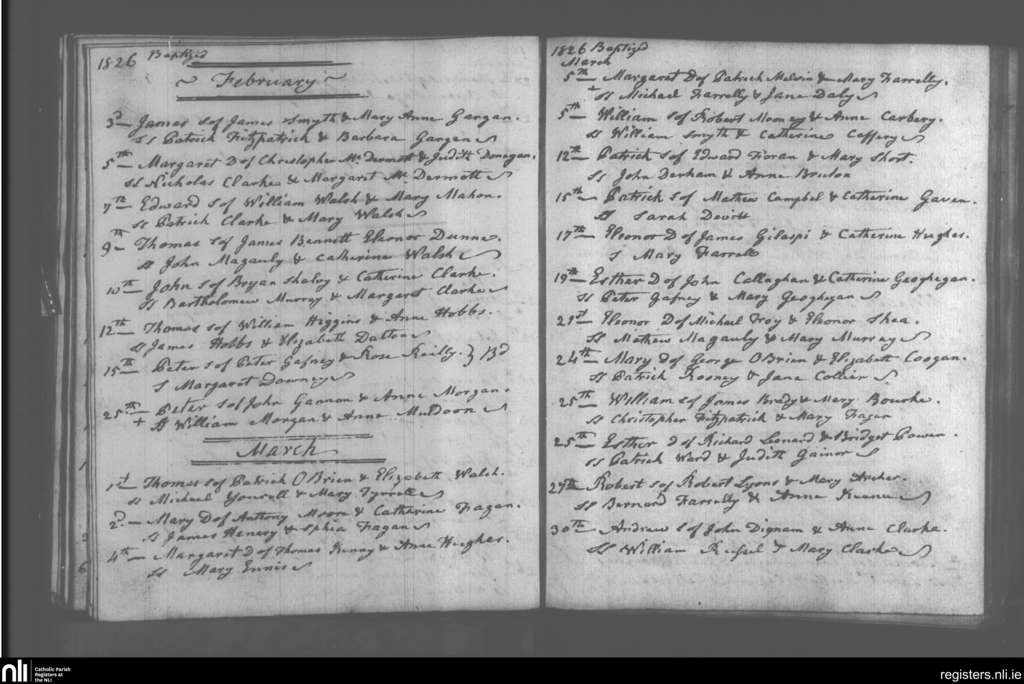 1826 Baptized
~ February ~
3d — James S of James Smyth & Mary Anne Gargan.
SS Patrick Fitzpatrick & Barbara Gargan
5th — Margaret D of Christopher Mc Dermott & Judith Donegan.
SS Nicholas Clarke & Margaret Mc Dermott
7th — Edward S of William Walsh & Mary Mahon.
SS Patrick Clarke & Mary Walsh
9th — Thomas S of James Bennett Eleonor Dunne.
SS John Magauly & Catherine Walsh
10th — John S of Bryan Shaloy & Catherine Clarke.
SS Bartholomew Murray & Margaret Clarke
12th — Thomas S of William Higgins & Anne Hobbs.
SS James Hobbs & Elizabeth Dalton
15th — Peter S of Peter Gafney & Rose Reilly. } 13d
S Margaret Downey
25th — Peter S of John Gannon & Anne Morgan.
+ SS William Morgan & Anne Muldoon
March
1st — Thomas S of Patrick O Brien & Elizabeth Walsh.
SS Michael Yourell & Mary Tyrrell
2d — Mary D of Anthony Moore & Catherine Fagan.
SS James Henery & Sphia Fagan
4th — Margaret D of Thomas Kenny & Anne Hughes.
SS Mary Ennis
1826 Baptized
March
5th — Margaret D of Patrick Melvin & Mary Farrelly.
+ SS Michael Farrelly & Jane Daly
5th — William S of Robert Mooney & Anne Carbery.
SS William Smyth & Catherine Caffery
12th — Patrick S of Edward Foran & Mary Short.
SS John Derham & Anne Bruton
15th — Patrick S of Mathew Campbel & Catherine Gaven.
SS Sarah Devitt
17th — Eleonor D of James Gilaspi & Catherine Hughes.
S Mary Farrell
19th — Esther D of John Callaghan & Catherine Geoghegan.
SS Peter Gafney & Mary Geoghegan
21st — Eleonor D of Michael Troy & Eleonor Shea.
SS Mathew Magauly & Mary Murray
24th — Mary D of George O Brien & Elizabeth Coogan.
SS Patrick Rooney & Jane Collier
25th — William S of James Brady & Mary Bourke.
SS Christopher Fitzpatrick & Mary Fagan
25th — Esther d of Richard Lenard & Bridget Cowen.
SS Patrick Ward & Judith Gainor
27th — Robert S of Robert Lyons & Mary Archer.
SS Bernard Farrelly & Anne Keena
30th — Andrew S of John Dignam & Anne Clarke.
SS William & Mary Clarke
nli
Catholic Parish
Registers at
the NLI
registers.nli.ie